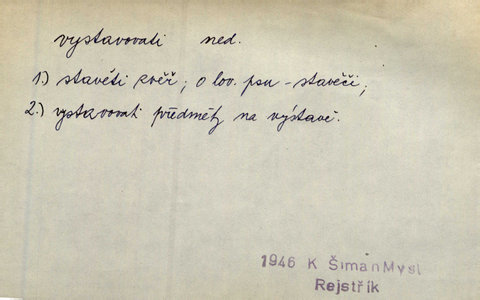 vystavovati ned.
1.) stavěti zvěř; o lov. psu - stavěči;
2.) vystavovati předměty na výstavě.
1946 K ŠimanMysl
Rejstřík